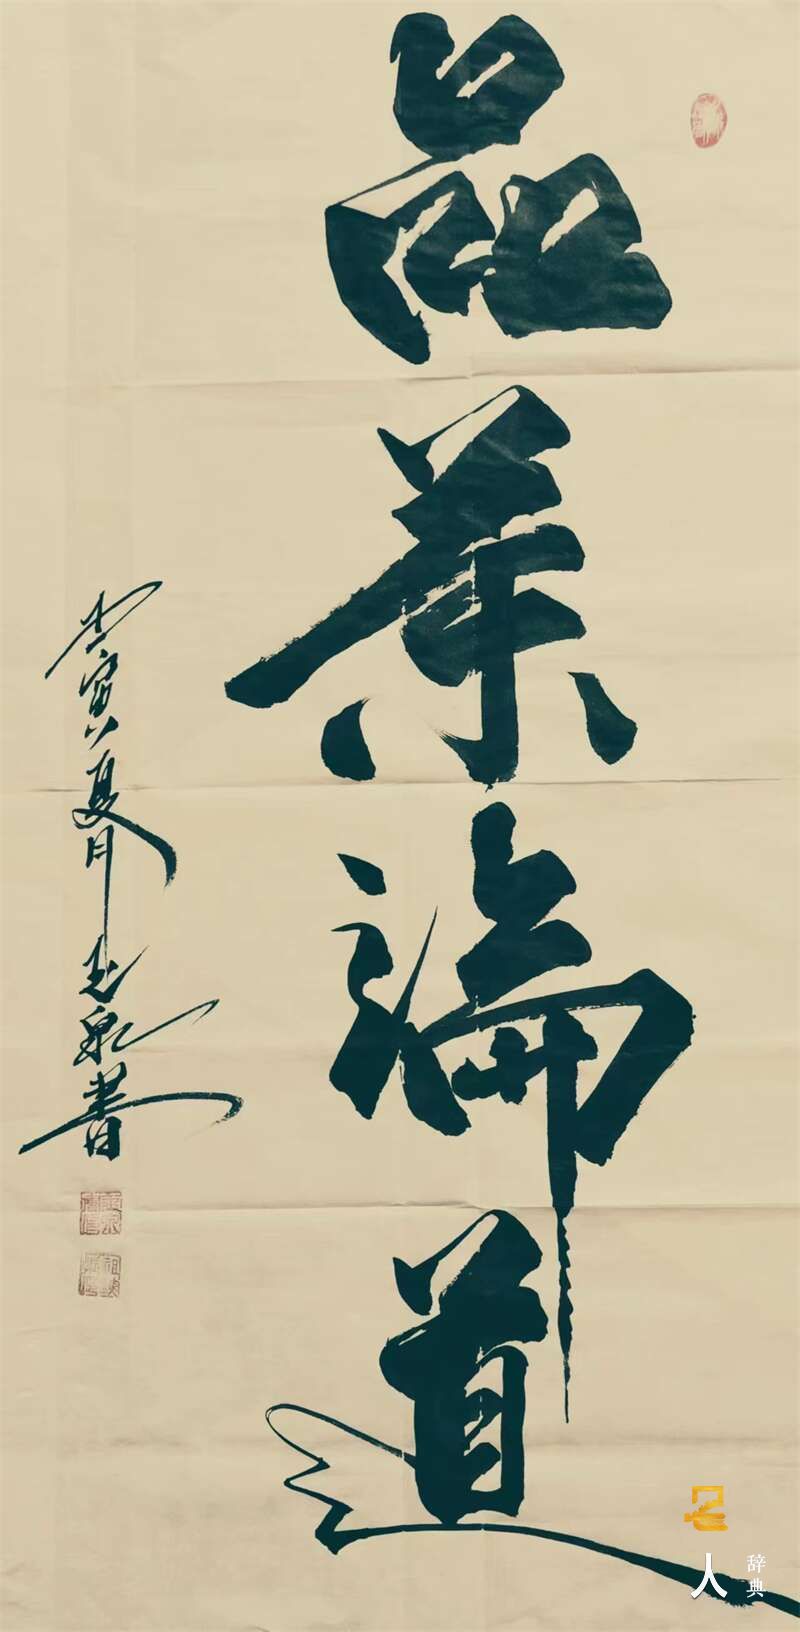 品茶論道
壬寅夏月泉書
名人
辞典